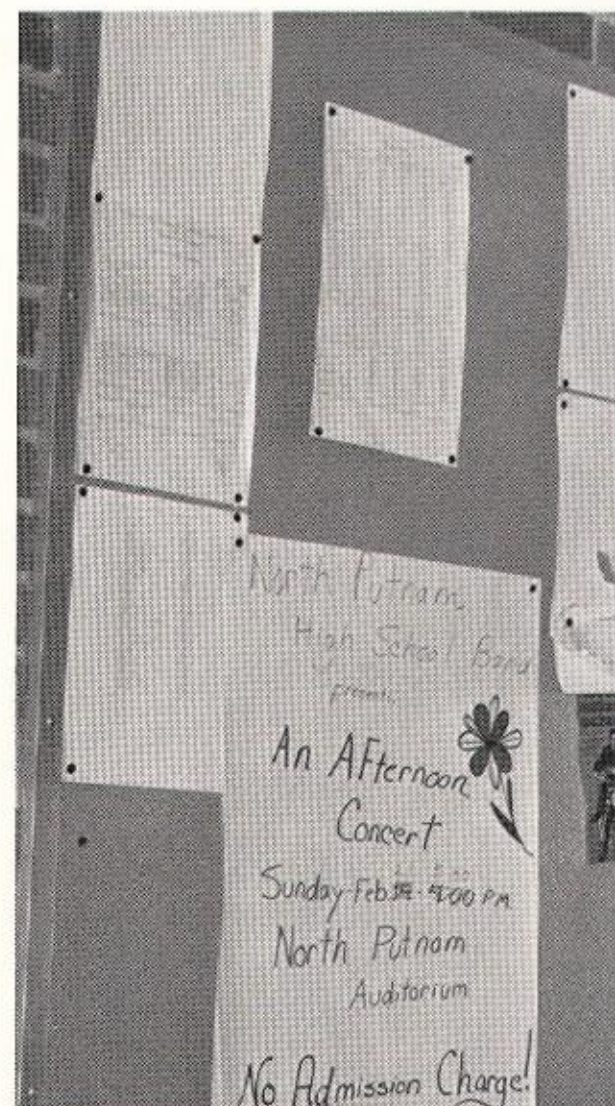 North Putnam
High School Band
presents
An AFternoon
Concert
Sunday-Feb. PM
North Putnam
Auditorium
No Admission Charge!